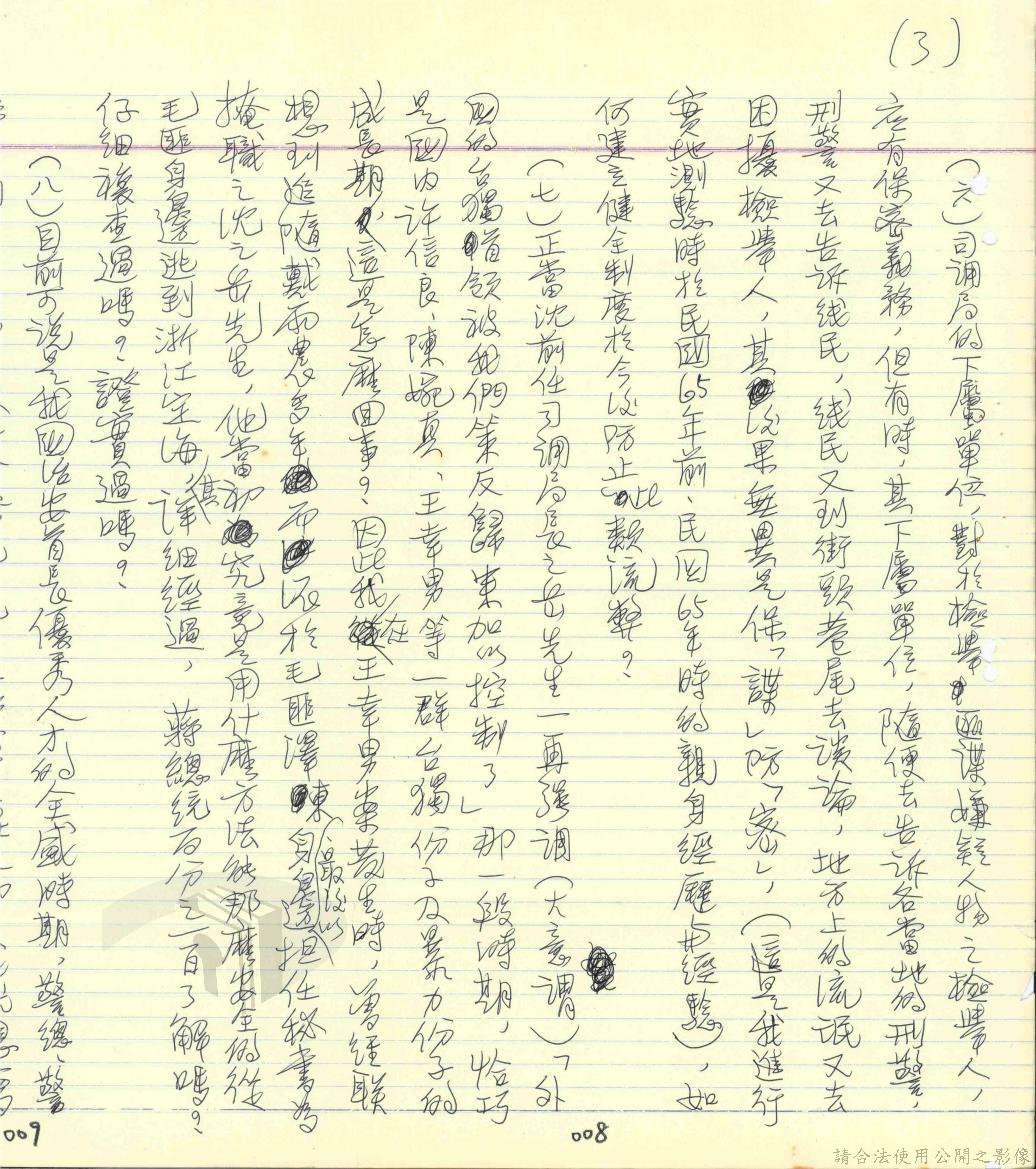 (3)
(六)司調局的下屬單位,對於檢舉匪諜嫌疑人物之檢舉人,
應有保密義務,但有時,其下屬單位,隨便去告訴各當地的刑警,
刑警又去告訴线民,线民又到街頭巷尾去談論,地方上的流氓又去
困擾檢舉人,其後果無異是保「諜」防「密」,(這是我進行
實地測驗時於民國65年前、民國65年時的親身經歷与經驗),如
何建立健全制度於今後防止此類流弊?
(七)正當沈前任司調局長之岳先生一再強調(大意謂)「外
國的台獨首領被我們策反歸來加以控制了」那一段時期,恰巧
是國內許信良、陳婉真、王幸男等一群台獨份子及暴力份子的
成長期,這是怎麼回事?因此我在王幸男案發生時,曾經联
想到追隨戴雨農多年而後派於毛匪澤東身邊(最後以)担任秘書為
掩職之沈之岳先生,他當初究竟是用什麼方法能那麼安全的從
毛匪身邊逃到浙江定海,其詳細經過,蔣總統百分之百了解嗎?
仔細複查過嗎?證實過嗎?
(八)目前可說是我國治安首長優秀人才的全盛時期,警總、警
009
008
請合法使用公開之影像